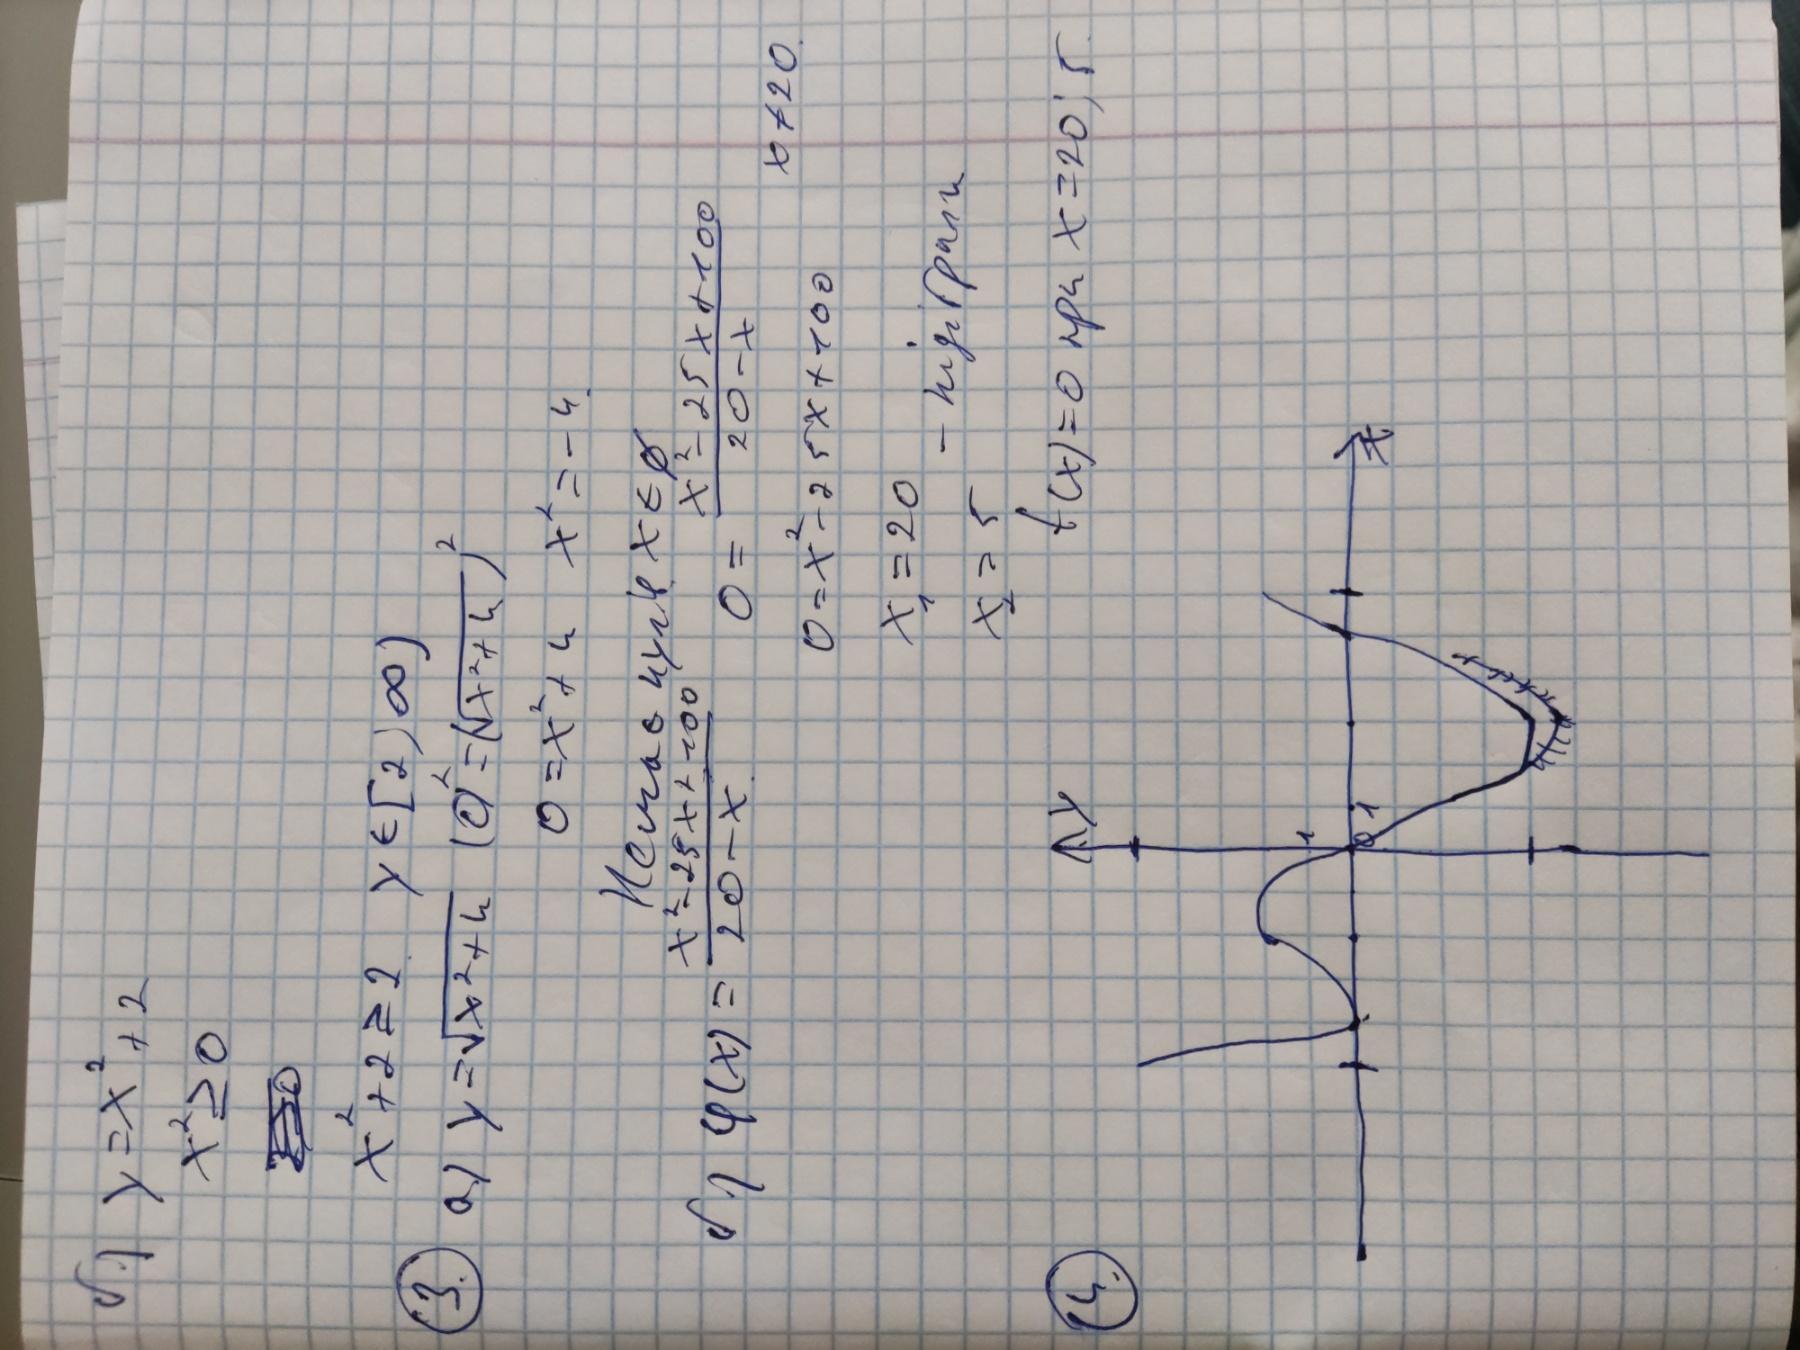 б) y=x²+2
x²≥0
x²+2≥2 y∈[2;∞)
3. a) y=√x²+4 (0)²=(√x²+4)²
0=x²+4 x²=-4
Немає нулів x∈∅
б) φ(x)= x²-25x+100 / 20-x 0= x²-25x+100 / 20-x
0=x²-25x+100 x≠20
x₁=20
x₂=5 - підібрали
f(x)=0 при x=20; 5
4.
y
1
0 1
x